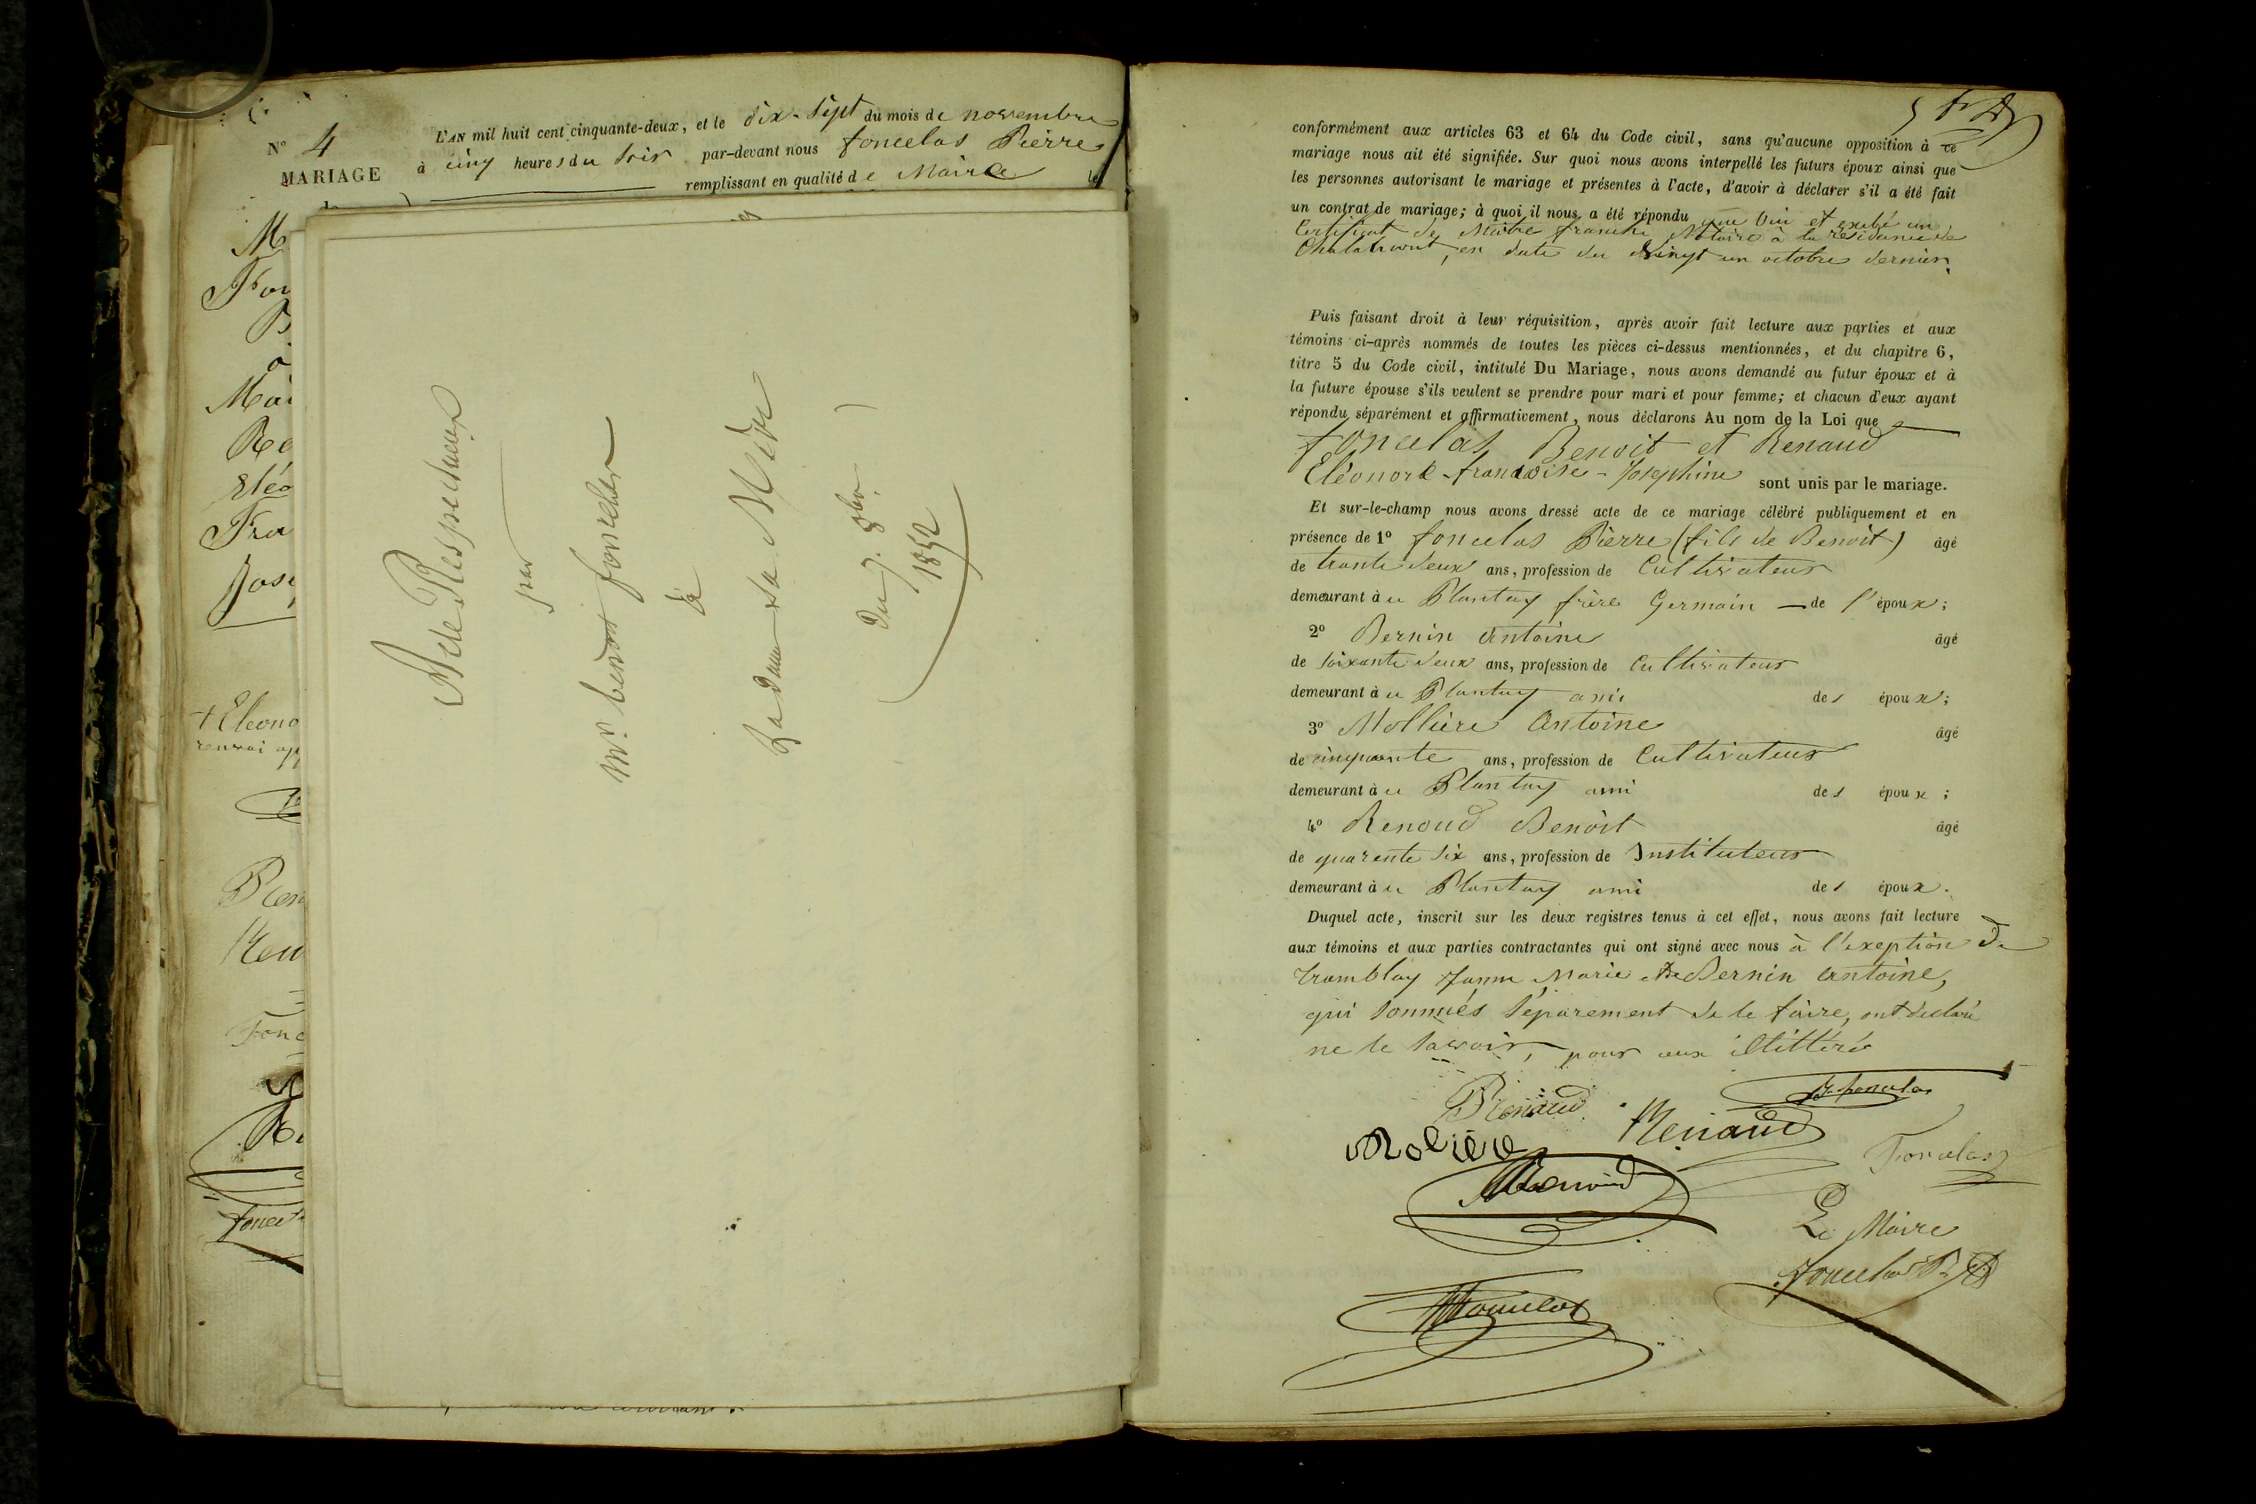 N° 4
MARIAGE
L'AN mil huit cent cinquante-deux, et le dix-sept du mois de novembre
à cinq heures du soir par-devant nous foncelas Pierre
remplissant en qualité de Maire
Fon
Mar
Re
Eléo
Fra
Jose
+ Eleono
renvoi app
Ren
Fonc
foncel
Acte Respectueux
par
Mr. benoit foncelas
à
La dame sa Mère
du 7. 8bre
1852
conformément aux articles 63 et 64 du Code civil, sans qu'aucune opposition à ce
mariage nous ait été signifiée. Sur quoi nous avons interpellé les futurs époux ainsi que
les personnes autorisant le mariage et présentes à l'acte, d'avoir à déclarer s'il a été fait
un contrat de mariage; à quoi il nous a été répondu que Oui et exibé un
Certificat de Maître franche Notaire à la résidence de
Chalamont, en date du vingt un octobre dernier.
Puis faisant droit à leur réquisition, après avoir fait lecture aux parties et aux
témoins ci-après nommés de toutes les pièces ci-dessus mentionnées, et du chapitre 6,
titre 5 du Code civil, intitulé Du Mariage, nous avons demandé au futur époux et à
la future épouse s'ils veulent se prendre pour mari et pour femme; et chacun d'eux ayant
répondu séparément et affirmativement, nous déclarons Au nom de la Loi que
foncelas Benoit et Renaud
Eléonore-françoise-Josephine sont unis par le mariage.
Et sur-le-champ nous avons dressé acte de ce mariage célébré publiquement et en
présence de 1° foncelas Pierre (fils de Benoit) âgé
de trente deux ans, profession de Cultivateur
demeurant à u Plantay frère Germain de l'époux;
2° Bernin Antoine âgé
de soixante deux ans, profession de Cultivateur
demeurant à u Plantay ami des époux;
3° Mollière Antoine âgé
de cinquante ans, profession de Cultivateur
demeurant à u Plantay ami des époux;
4° Renoud Benoit âgé
de quarente six ans, profession de Instituteur
demeurant à u Plantay ami des époux.
Duquel acte, inscrit sur les deux registres tenus à cet effet, nous avons fait lecture
aux témoins et aux parties contractantes qui ont signé avec nous à l'exeption de
tramblay Jeanne Marie et de Bernin Antoine,
qui sommés séparement de le faire, ont déclaré
ne le savoir, pour être illittérés
B. foncelas
Renaud
Renaud
Molière
Foncelas
Renoud
Le Maire
foncelas P.
foncelas